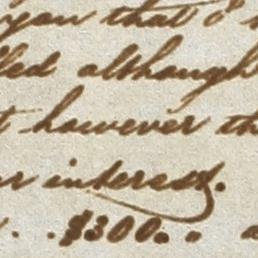 you that
led although
t however th
r interest.
. . $300. .